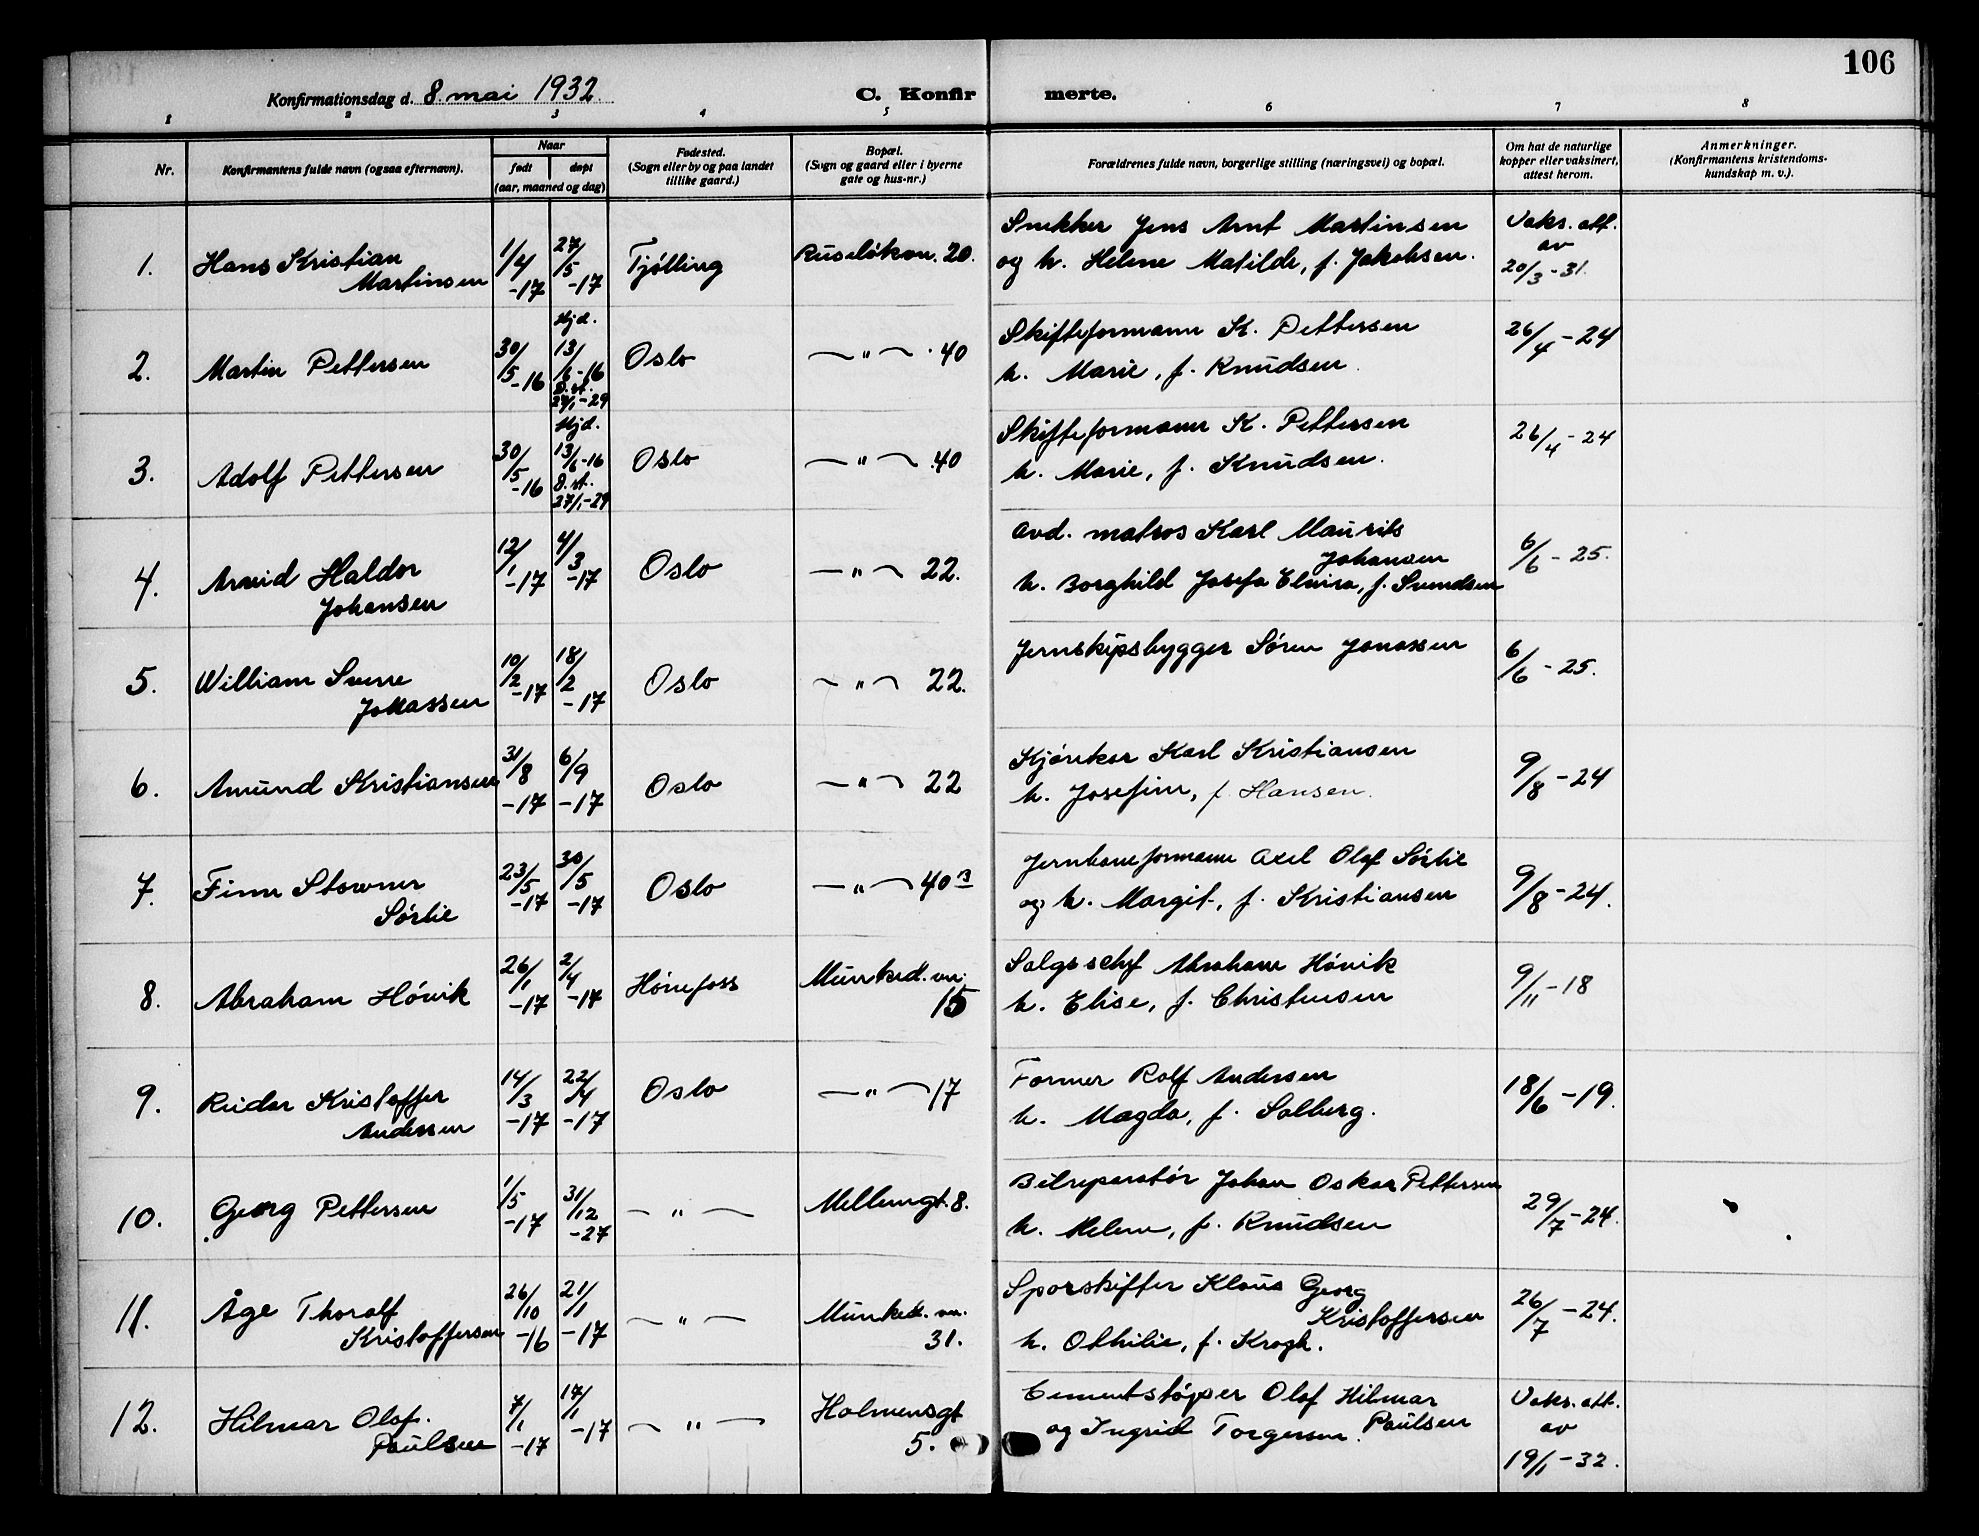 106
Konfirmationsdag d. 8. mai 1932.
C. Konfirmerte.
1 2 3 4 5 6 7 8
Nr.
Konfirmantens fulde navn (ogsaa efternavn).
Naar
født
døpt
(aar, maaned og dag)
Fødested.
(Sogn eller by og paa landet
tillike gaard.)
Bopæl.
(Sogn og gaard eller i byerne
gate og hus-nr.)
Forældrenes fulde navn, borgerlige stilling (næringsvei) og bopæl.
Om hat de naturlige
kopper eller vaksinert,
attest herom.
Anmerkninger.
(Konfirmantens kristendoms-
kundskap m. v.).
1. Hans Kristian
Martinsen
1/4 -17
27/5 -17
Tjølling
Ruseløkvn. 20.
Snekker Jens Arnt Martinsen
og h. Helene Matilde, f. Jakobsen.
Vaks. att.
av
20/3 - 31.
2. Martin Pettersen
30/5 -16
Hjd.
13/6 -16
D. st.
27/1 - 29
Oslo
— " — 40
Skifteformann K. Pettersen
h. Marie, f. Knudsen.
26/4 - 24
3. Adolf Pettersen
30/5 -16
Hjd.
13/6 -16
D. st.
27/1 - 29
Oslo
— " — 40
Skifteformann K. Pettersen
h. Marie, f. Knudsen.
26/4 - 24
4. Arvid Haldor
Johansen
12/1 -17
4/3 -17
Oslo
— " — 22.
Avd. matros Karl Maurits
Johansen
h. Borghild Josefa Elvira, f. Svendsen
6/6 - 25.
5. William Sverre
Jonassen
10/2 -17
18/2 -17
Oslo
— " — 22.
Jernskipsbygger Søren Jonassen
6/6 - 25.
6. Amund Kristiansen
31/8 -17
6/9 -17
Oslo
— " — 22
Kjørekar Karl Kristiansen
h. Josefine, f. Hansen.
9/8 - 24
7. Finn Stowner
Sørlie
23/5 -17
30/5 -17
Oslo
— " — 40 B
Jernbaneformann Axel Olaf Sørlie
og h. Margit, f. Kristiansen
9/8 - 24.
8. Abraham Hövik
26/1 -17
2/4 -17
Hönefoss
Munked. vn.
15
Salgsschef Abraham Hövik
h. Elise, f. Christensen
9/11 - 18
9. Reidar Kristoffer
Andersen
14/3 -17
22/4 -17
Oslo
— " — 17
Former Rolf Andersen
h. Magda, f. Solberg.
18/6 - 19.
10. Georg Pettersen
1/5 -17
31/12 -27
— " —
Mellemgt. 8.
Bilreparatör Johan Oskar Pettersen
h. Helene, f. Knudsen
29/7 - 24.
11. Åge Thoralf
Kristoffersen
26/10 -16
21/1 -17
— " —
Munked. vn.
31.
Sporskifter Klaus Georg
Kristoffersen
h. Othilie, f. Krogh.
26/7 - 24.
12. Hilmar Olaf.
Paulsen
7/1 -17
17/1 -17
— " —
Holmensgt
5.
Cementstøper Olaf Hilmar
Paulsen
og Ingrid Torgersen.
Vaks. att.
av
19/1 - 32.